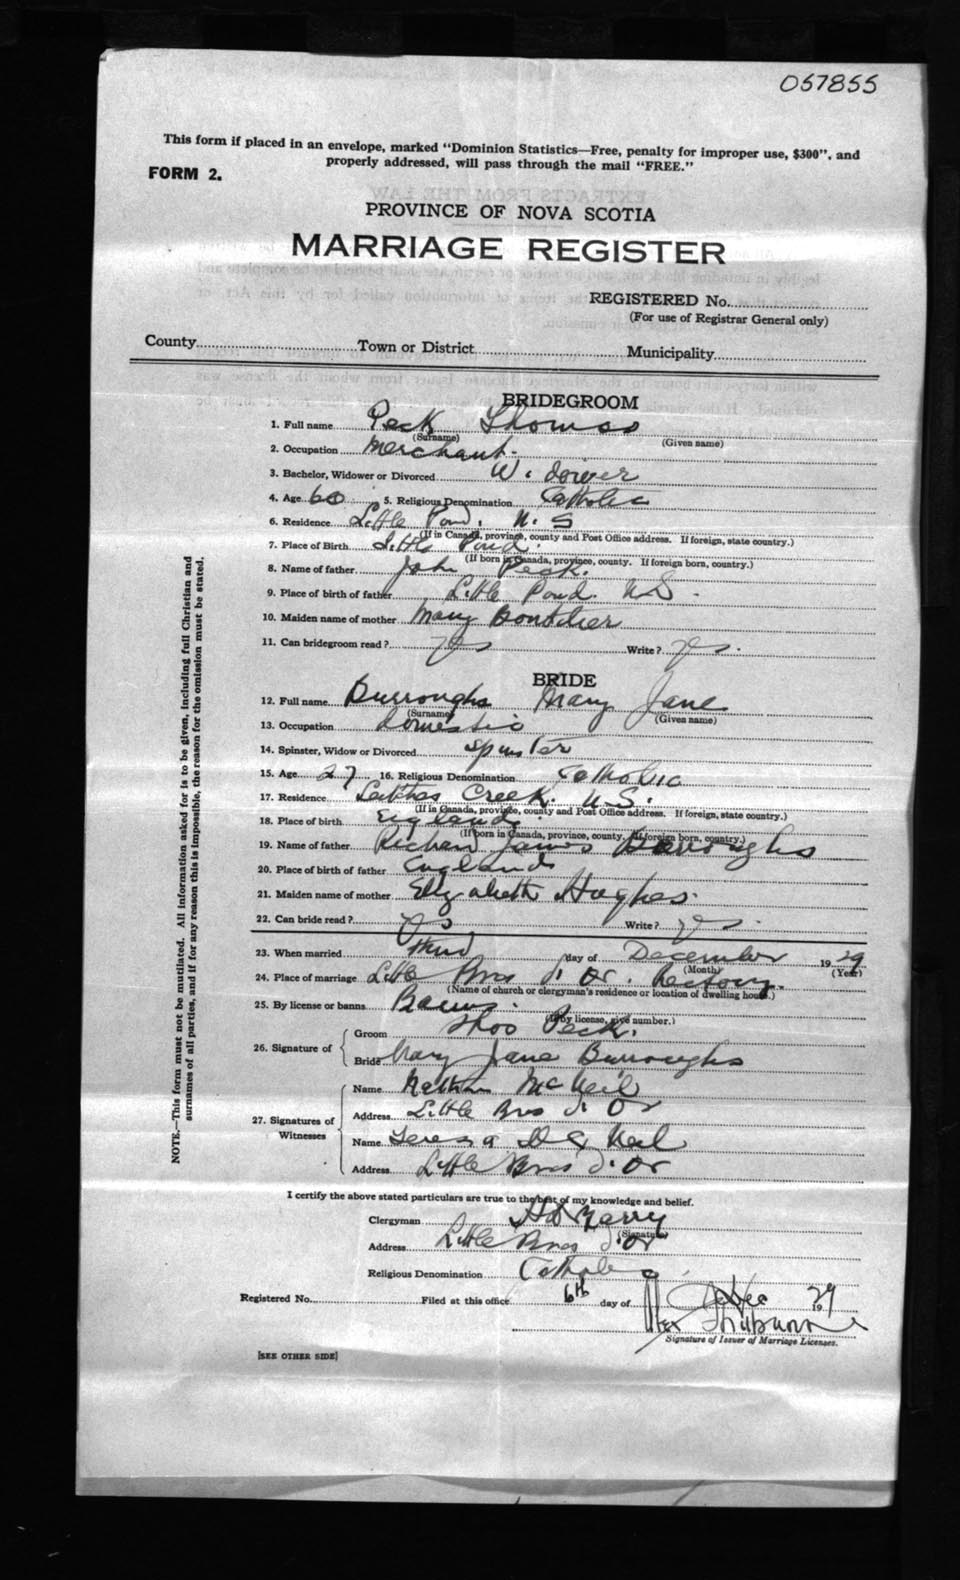 057855
This form if placed in an envelope, marked "Dominion Statistics—Free, penalty for improper use, $300", and
properly addressed, will pass through the mail "FREE."
FORM 2.
PROVINCE OF NOVA SCOTIA
MARRIAGE REGISTER
REGISTERED No.
(For use of Registrar General only)
County Town or District Municipality
BRIDEGROOM
1. Full name Peck Thomas
(Surname) (Given name)
2. Occupation Merchant.
3. Bachelor, Widower or Divorced Widower
4. Age 60 5. Religious Denomination Catholic
6. Residence Little Pond. N. S
(If in Canada, province, county and Post Office address. If foreign, state country.)
7. Place of Birth Little Pond.
(If born in Canada, province, county. If foreign born, country.)
8. Name of father John Peck.
9. Place of birth of father Little Pond. N.S.
10. Maiden name of mother Mary
11. Can bridegroom read? Yes Write? Yes.
BRIDE
12. Full name Burroughs Mary Jane
(Surname) (Given name)
13. Occupation Domestic
14. Spinster, Widow or Divorced Spinster
15. Age 27 16. Religious Denomination Catholic
17. Residence Leitches Creek. N.S.
(If in Canada, province, county and Post Office address. If foreign, state country.)
18. Place of birth England.
(If born in Canada, province, county. If foreign born, country.)
19. Name of father Richard James Burroughs
20. Place of birth of father England
21. Maiden name of mother Elizabeth Hughes.
22. Can bride read? Yes Write? Yes.
23. When married Third day of December 1929
(Month) (Year)
24. Place of marriage Little Bras d'Or. Rectory.
(Name of church or clergyman's residence or location of dwelling house.)
25. By license or banns Banns.
(If by license, give number.)
26. Signature of
Groom Thos Peck.
Bride Mary Jane Burroughs
27. Signatures of
Witnesses
Name McNeil
Address Little Bras d'Or
Name Teresa
Address Little Bras d'Or
I certify the above stated particulars are true to the best of my knowledge and belief.
Clergyman
(Signature)
Address Little Bras d'Or
Religious Denomination Catholic
Registered No. Filed at this office 6th day of Dec 1929
Signature of Issuer of Marriage Licenses.
[SEE OTHER SIDE]
NOTE.—This form must not be mutilated. All information asked for is to be given, including full Christian and
surnames of all parties, and if for any reason this is impossible, the reason for the omission must be stated.